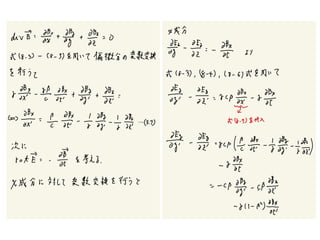 div B = ∂Bx/∂x + ∂By/∂y + ∂Bz/∂z = 0
式(8-3)-(8-5)を用いて偏微分の変数変換
を行うと
γ ∂Bx/∂x' - γβ/c ∂Bx/∂t' + ∂By/∂y' + ∂Bz/∂z' =
(⇔) ∂Bx/∂x' = β/c ∂Bx/∂t' - 1/γ ∂By/∂y' - 1/γ ∂Bz/∂z'
次に
rot E = - ∂B/∂t を考える.
x成分に対して変数変換を行うと
x成分
∂Ez/∂y - ∂Ey/∂z = - ∂Bx/∂t より
式(8-3), (8-4), (8-6)式を用いて
∂Ez/∂y' - ∂Ey/∂z' = γcβ ∂Bx/∂x' - γ ∂Bx/∂t'
∂Ez/∂y' - ∂Ey/∂z' = γcβ(β/c ∂Bx/∂t' - 1/γ ∂By/∂y' - 1/γ ∂Bz/∂z')
- γ ∂Bx/∂t'
= - cβ ∂By/∂y' - cβ ∂Bz/∂z'
- γ(1-β²) ∂Bx/∂t'